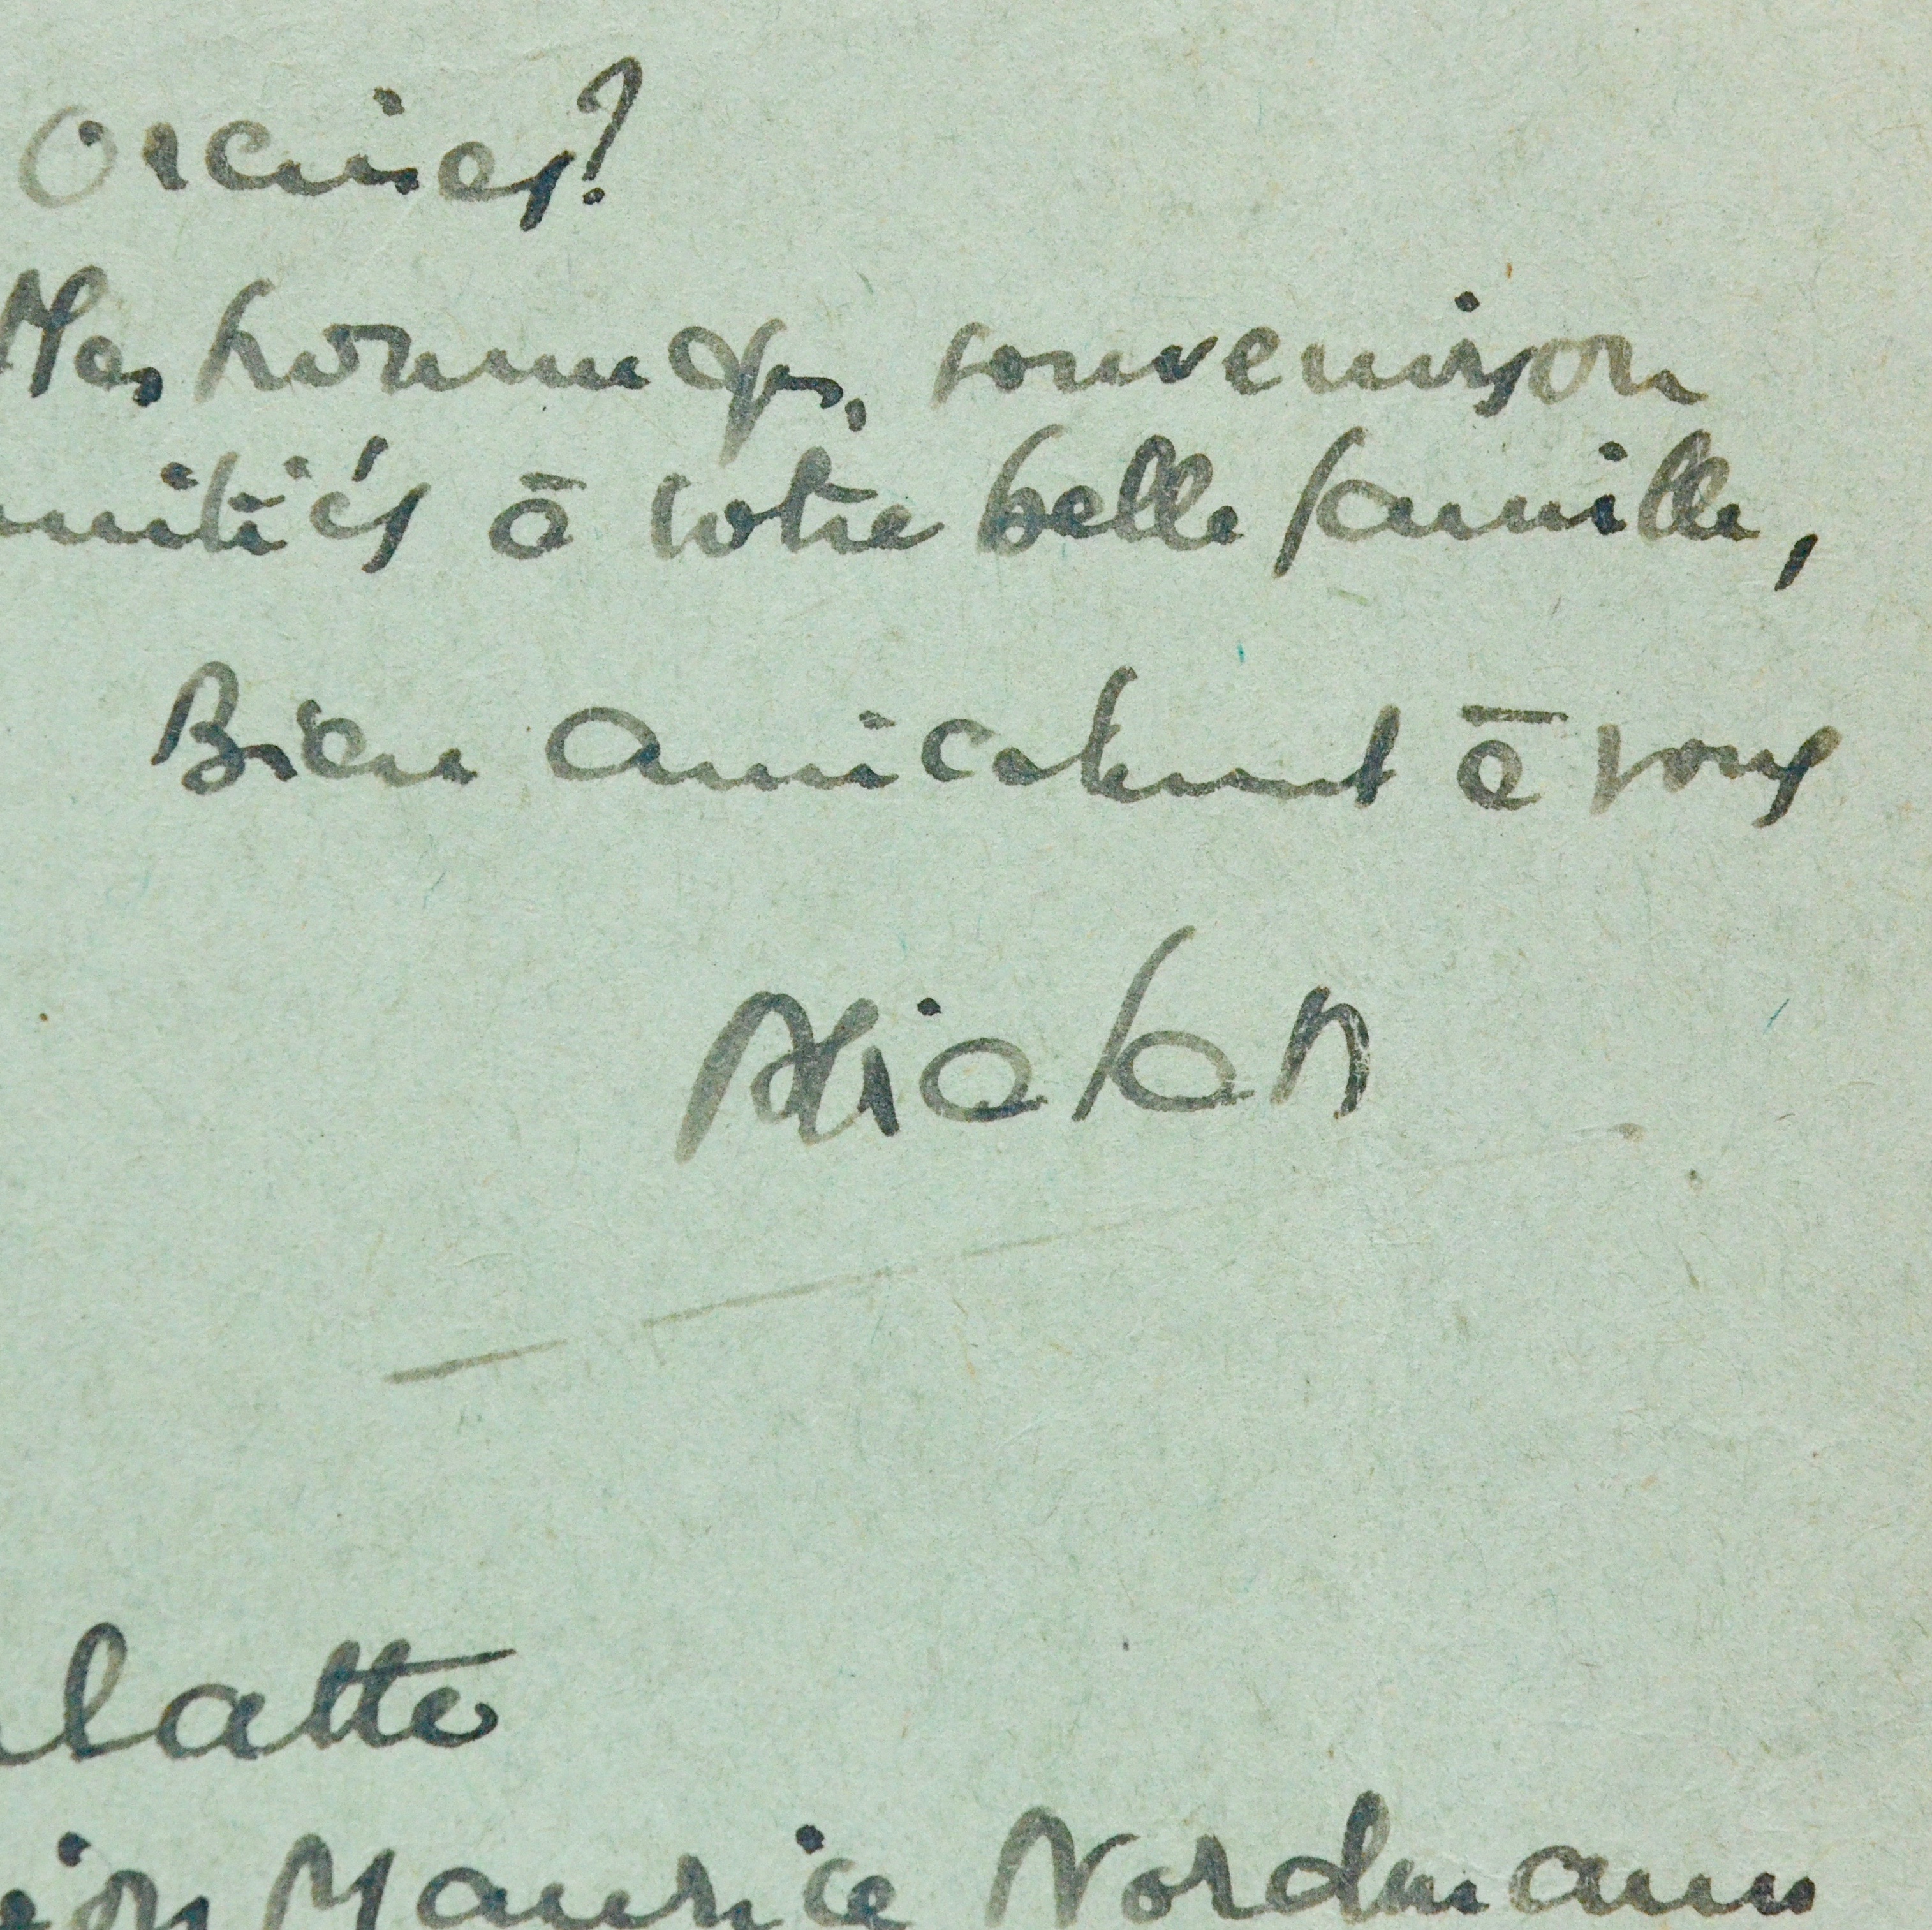 Orcines?
Mes hommages, souvenirs ou
mitiés à votre belle famille,
Bien amicalement à vous
latte
Maurice Nordmann